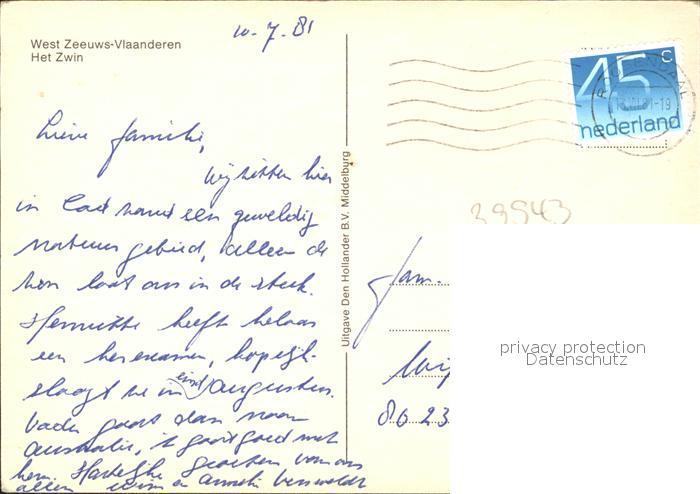 West Zeeuws-Vlaanderen
Het Zwin
10-7-81
Lieve familie,
Wij zitten hier
in Cadzand een geweldig
natuur gebied, alleen de
zon laat ons in de steek.
heeft helaas
een herexamen, hopelijk
slaagt ze in eind Augustus.
Vader gaat dan naar
Australië, 't gaat goed met
hem Hartelijke groeten van ons
allen Wim en
Uitgave Den Hollander B.V. Middelburg
45 c
nederland
ROOSENDAAL
39543
Fam.
8623
privacy protection
Datenschutz